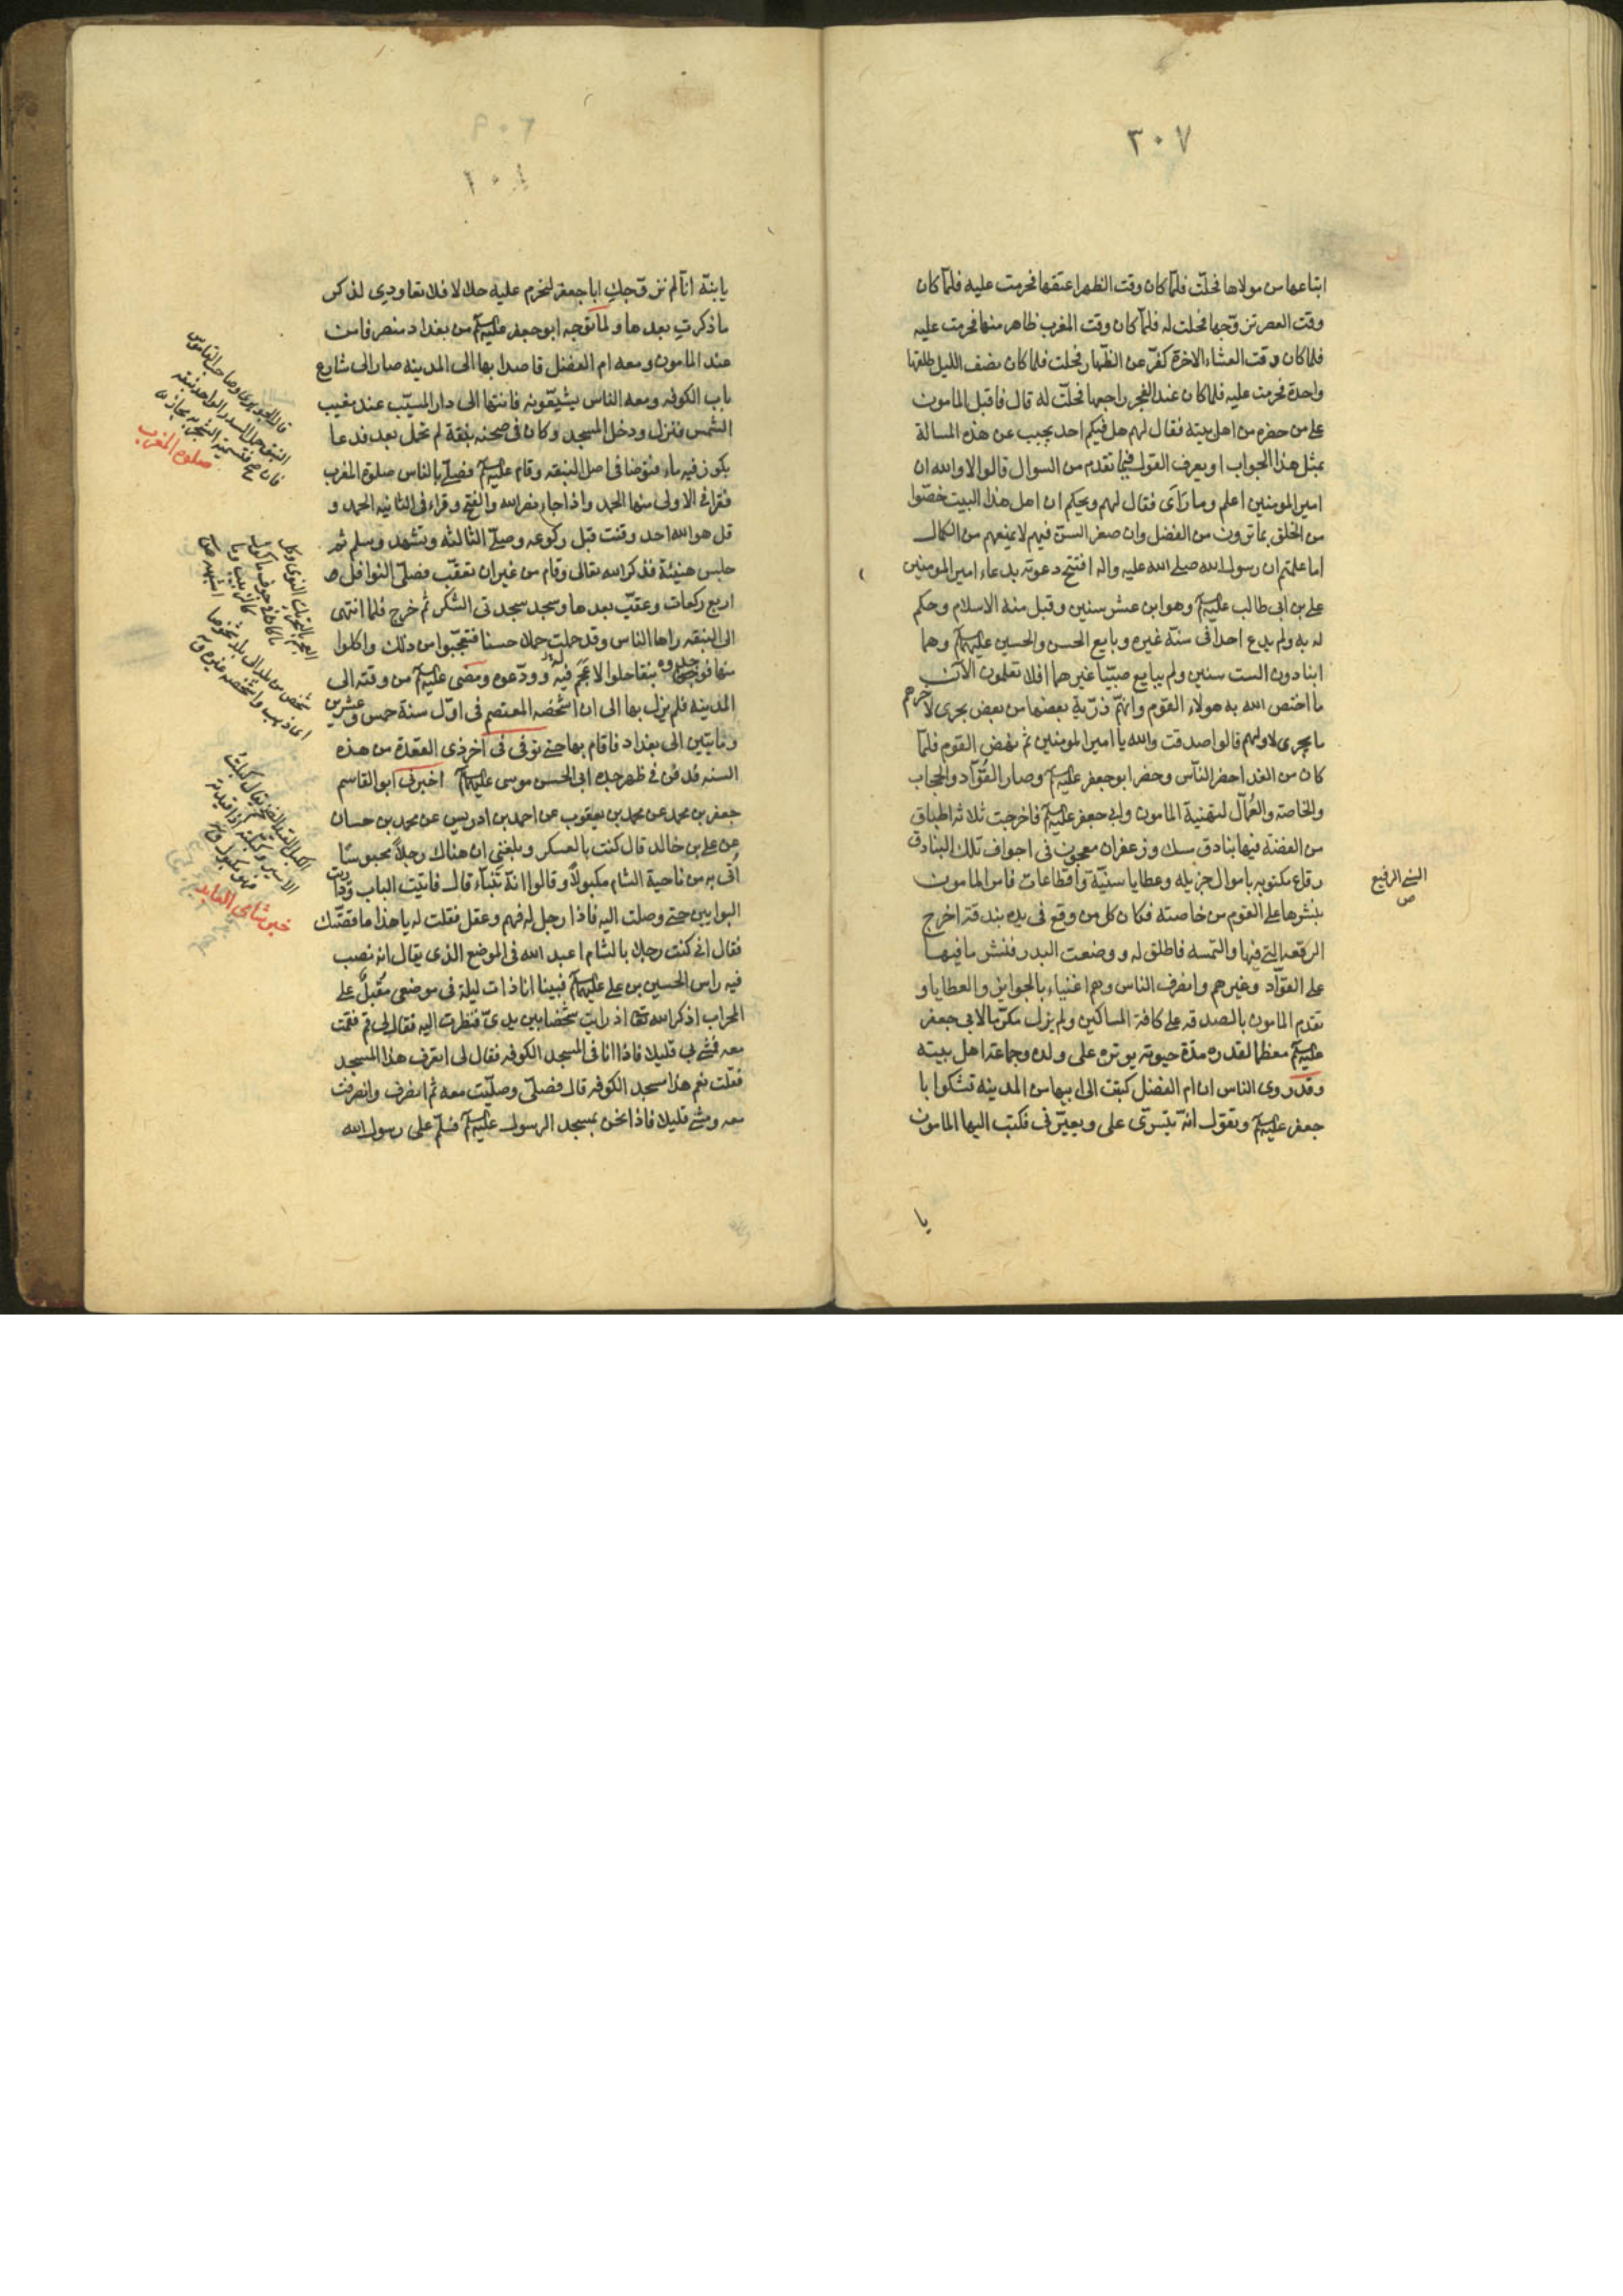 ٣٠٧
ابتاعها من مولاها فحلّت فلمّا كان وقت الظهر اعتقها فحرمت عليه فلمّا كان
وقت العصر تزوّجها فحلت له فلمّا كان وقت المغرب ظاهر منها فحرمت عليه
فلما كان وقت العشاء الاخرة كفّر عن الظهار فحلت فلما كان نصف الليل طلقها
واحدة فحرمت عليه فلما كان عند الفجر راجعها فحلّت له قال فاقبل المامون
على من حضره من اهل بيته فقال لهم هل فيكم احد يجيب عن هذه المسالة
بمثل هذا الجواب او يعرف القول فيما تقدم من السوال قالوا لا والله ان
امير المومنين اعلم وما رَاَى فقال لهم ويحكم ان اهل هذا البيت خصّوا
من الخلق بما ترون من الفضل وان صغر السنّ فيهم لا يمنعهم من الكمال
اما علمتم ان رسول الله صلى الله عليه واله افتتح دعوته بدعاء امير المومنين
على بن ابى طالب عليه السلم وهو ابن عشر سنين وقبل منه الاسلام وحكم
له به ولم يدع احدا فى سنّه غيره وبايع الحسن والحسين عليهما السلم وهما
ابنا دون الست سنين ولم يبايع صبيّا غيرهما افلا تعلمون الآن
ما اختص الله به هولاء القوم وانهم ذرّية بعضها من بعض يجرى لاخرهم
ما يجرى لاولهم قالوا صدقت والله يا امير المومنين ثم نهض القوم فلمّا
كان من الغد احضر النّاس وحضر ابو جعفر عليه السلم وصار القُوّاد والحجاب
والخاصة والعُمّال لتهنية المامون وابى جعفر عليه السلم فاخرجت ثلاثة اطباق
من الفضة فيها بنادق مسك وزعفران معجون فى اجواف تلك البنادق
رقاع مكتوبه باموال جزيله وعطايا سنيّة واقطاعات فامر المامون
بنشرها على القوم من خاصته فكان كل من وقع فى يده بندقة اخرج
الرقعه التى فيها والتمسه فاطلق له ووضعت البدر فنشر ما فيها
على القوّاد وغيرهم وانصرف الناس وهم اغنياء بالجوايز والعطايا و
تقدم المامون بالصدقه على كافة المساكين ولم يزل مكرّما لابى جعفر
عليه السلم معظما لقدره مدّة حيوته يوثره على ولده وجماعة اهل بيته
وقد روى الناس ان ام الفضل كتبت الى ابيها من المدينه تشكوا با
جعفر عليه السلم وتقول انّه يتسرّى على ويغيّرنى فكتب اليها المامون
يا
السنى الرفيع
ص
يا بنيّة انّا لم نزوّجكِ ابا جعفر لنحرم عليه حلالا فلا تعاودى لذكر
ما ذكرتِ بعدها ولما توجه ابو جعفر عليه السلم من بغداد منصرفا من
عند المامون ومعه ام الفضل قاصدا بها الى المدينه صار الى شارع
باب الكوفه ومعه الناس يشيّعونه فانتها الى دار المسيّب عند مغيب
الشمس فنزل ودخل المسجد وكان فى صحنه نبقة لم تحمل بعد فدعا
بكوز فيه ماء فتوضا فى اصل النبقه وقام عليه السلم فصلى بالناس صلوة المغرب
فقرا فى الاولى منها الحمد واذا جاء نصر الله والفتح وقراء فى الثانيه الحمد و
قل هو الله احد وقنت قبل ركوعه وصلى الثالثه وتشهد وسلم ثم
جلس هنيئة فذكر الله تعالى وقام من غير ان تعقّب فصلّى النوافل
اربع ركعات وعقّب بعدها وسجد سجدتى الشكر ثم خرج فلما انتهى
الى النبقه راها الناس وقد حملت حملا حسنا فتعجّبوا من ذلك واكلوا
منها فوجدوه نبقا حلوا لا عَجَم فيه له وودّعوه ومضى عليه السلم من وقته الى
المدينه فلم يزل بها الى ان اشخصه المعتصم فى اوّل سنة خمس وعشرين
ومايتين الى بغداد فاقام بها حتى توفى فى آخر ذى القعدة من هذه
السنه فدفن فى ظهر جده ابى الحسن موسى عليهما السلم اخبرنى ابو القاسم
جعفر بن محمد عن محمد بن يعقوب عن احمد بن ادريس عن محمد بن حسان
عن على بن خالد قال كنت بالعسكر وبلغنى ان هناك رجلاً محبوسًا
اُتى به من ناحية الشام مكبولاً وقالوا انّه تنبّاء قال فاتيت الباب وداريت
البوابين حتى وصلت اليه فاذا رجل له فهم وعقل فقلت له يا هذا ما قصّتك
فقال انى كنت رجلا بالشام اعبد الله فى الموضع الذى يقال انه نصب
فيه راس الحسين بن على عليهما السلم فبينا انا ذات ليلة فى موضعى مقبل على
المحراب اذكر الله تعا اذ رايت شخصا بين يدىّ فنظرت اليه فقال لى قم فقمت
معه فمشى بى قليلا فاذا انا فى المسجد الكوفه فقال لى اتعرف هذا المسجد
فقلت نعم هذا مسجد الكوفه قال فصلّى وصلّيت معه ثم انصرف وانصرفت
معه ومشى قليلا فاذا نحن بمسجد الرسول عليه السلم فسلّم على رسول الله
صلوة المغرب
خبر شامى العابد